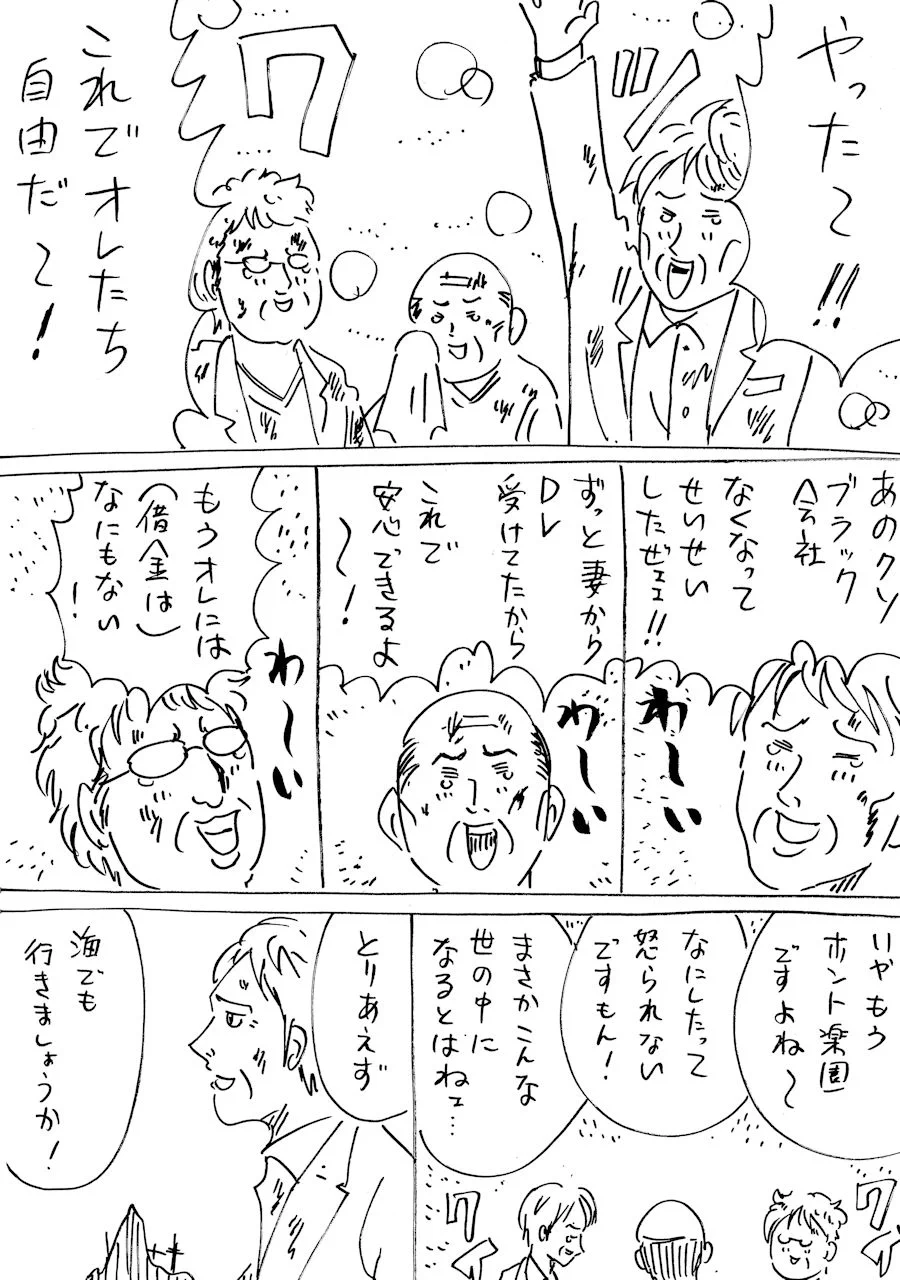 やった〜!!
ワッ
これでオレたち
自由だ〜!
あのクソ
ブラック
会社
なくなって
せいせい
したぜェェ!!
わ〜い
ずっと妻から
DV
受けてたから
これで
安心できるよ
〜!
わ〜い
もうオレには
(借金は)
なにもない
!
わ〜い
いやもう
ホント楽園
ですよね〜
なにしたって
怒られない
ですもん!
まさかこんな
世の中に
なるとはねェ…
ワイ
ワイ
とりあえず
海でも
行きましょうか!